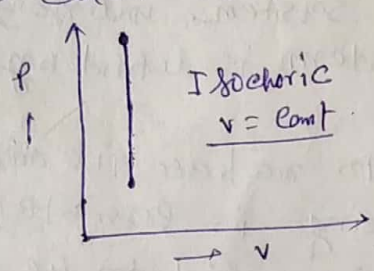 P
Isochoric
V = Const
V